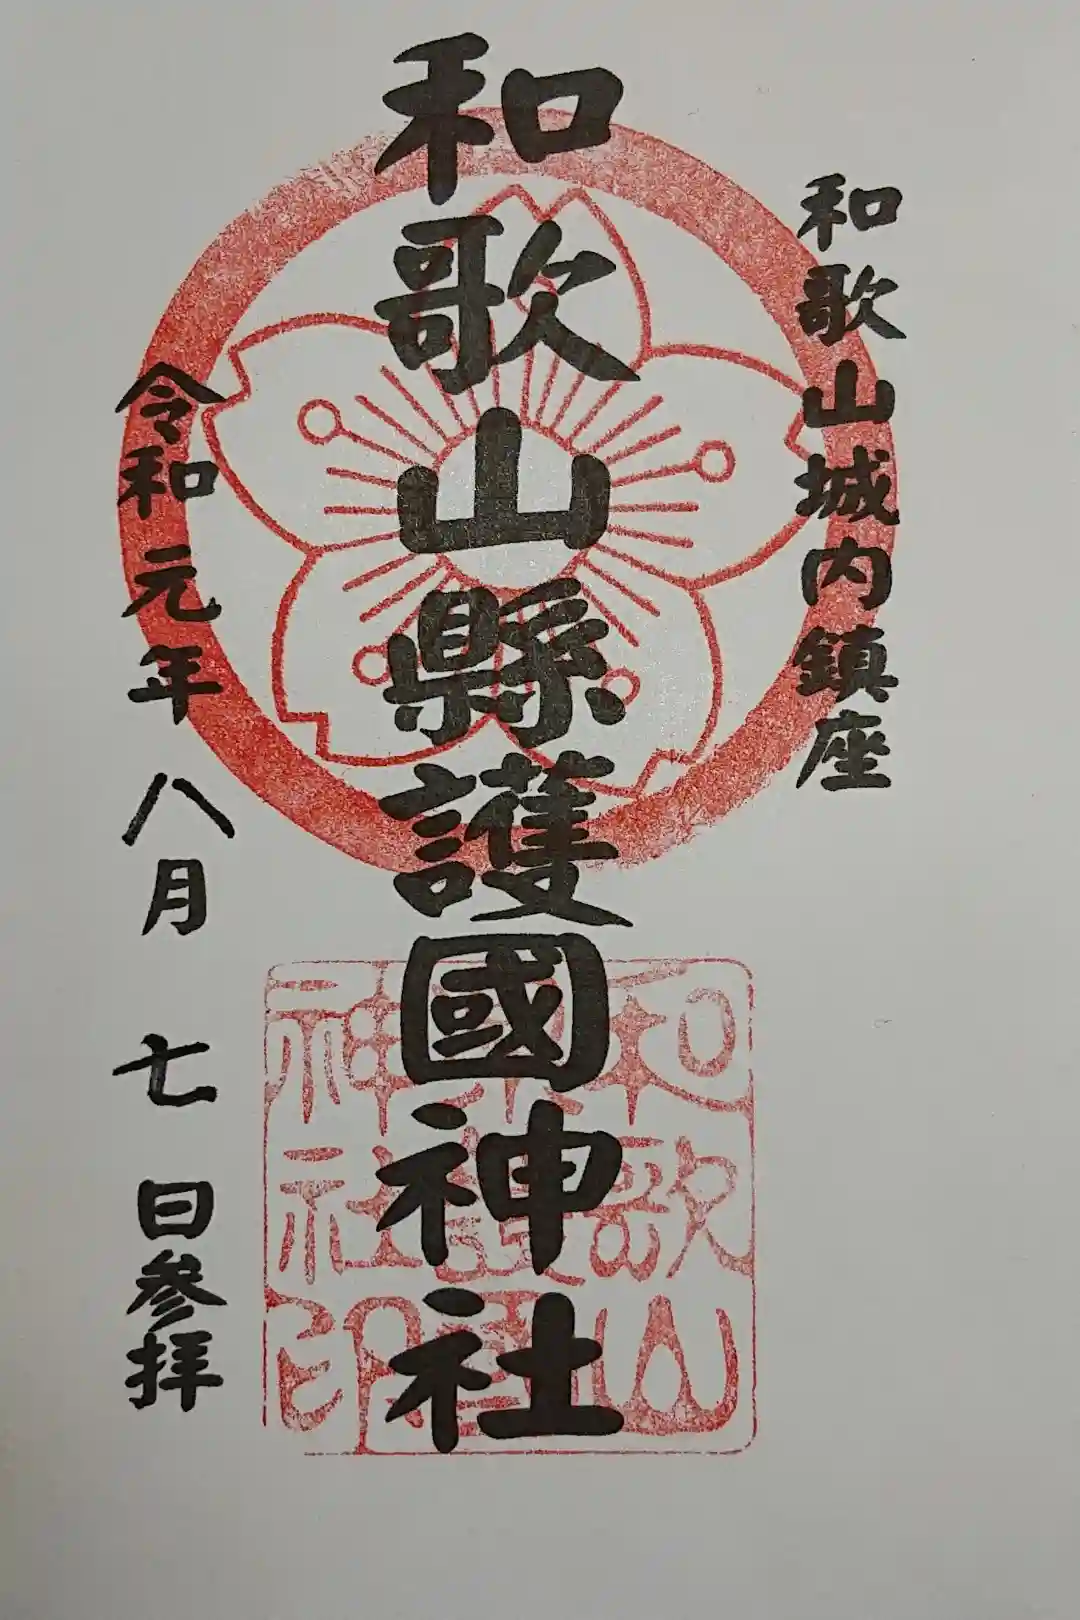 和歌山城内鎮座
和歌山縣護國神社
令和元年 八月 七 日参拝
和歌山縣護國神社印